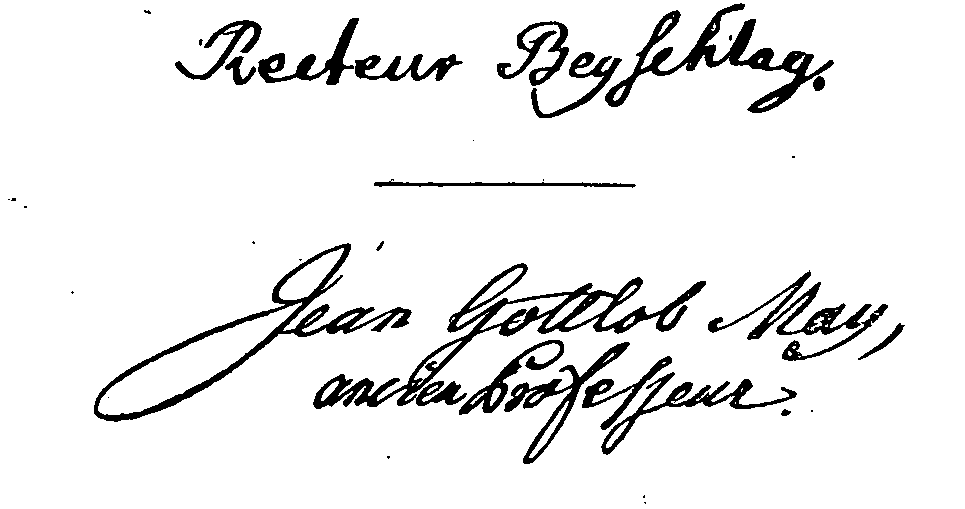 Recteur Beyschlag.
Jean Gottlob May,
ancien Professeur.